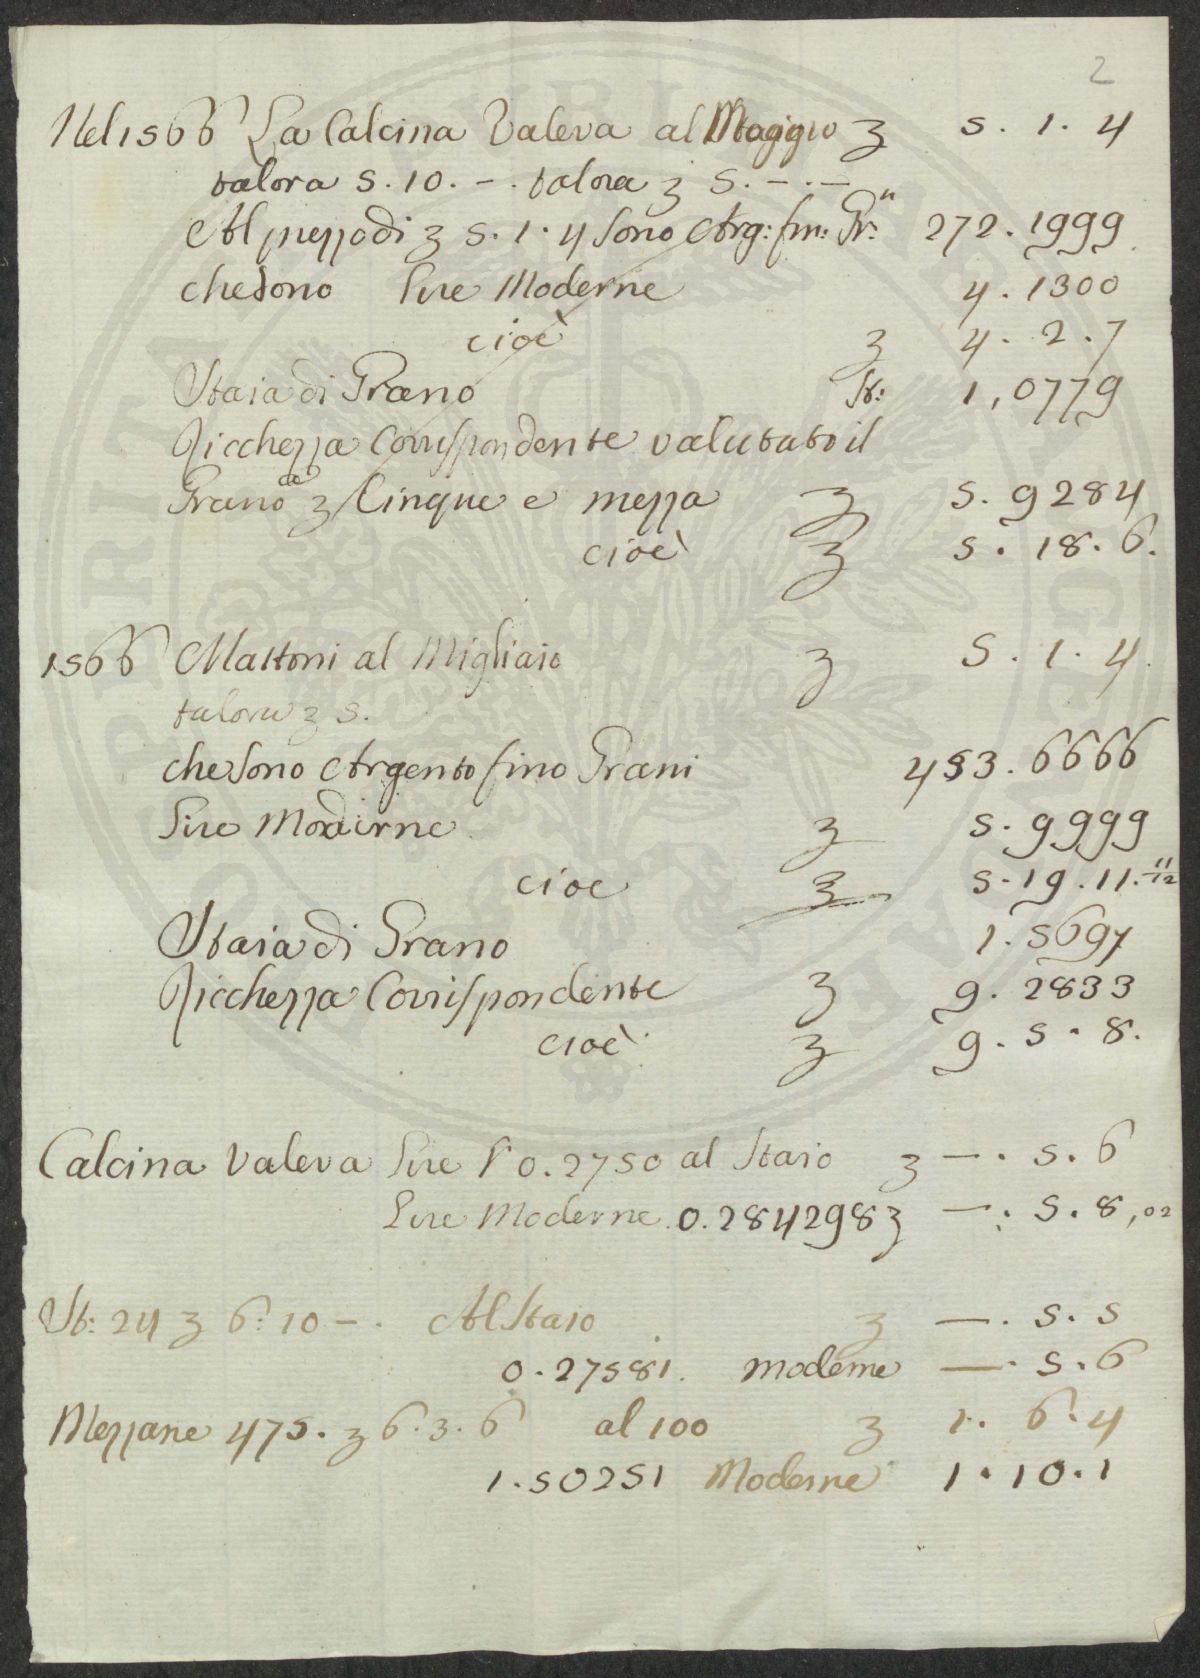 2
Nel 1566 La Calcina Valeva al Moggio £ 5. 1. 4
talora 5. 10. -. talora £ 5. -. -
Al prezzo di £ 5. 1. 4 sono Arg: fin: Gr: 272. 1999
che sono Lire Moderne 4. 1300
cioè £ 4. 2. 7
Staia di Grano St: 1,0779
Ricchezza Corrispondente valutato il
Grano a £ Cinque e mezza £ 5. 9284
cioè £ 5. 18. 6.
1566 Mattoni al Migliaio £ 5. 1. 4.
talora £ 5.
che sono Argento fino Grani 453. 6666
Lire Moderne £ 5. 9999
cioe £ 5. 19. 11. 11/12
Staia di Grano 1. 5697
Ricchezza Corrispondente £ 9. 2833
cioè £ 9. 5. 8.
Calcina Valeva Lire 0. 2750 al Staio £ —. 5. 6
Lire Moderne. 0. 284298 £ —. 5. 8,02
St: 24 £ 6: 10 -. Al Staio £ —. 5. 5
0. 27581. moderne —. 5. 6
Mezzane 475. £ 6. 3. 6 al 100 £ 1. 6. 4
1. 50251 Moderne 1. 10. 1